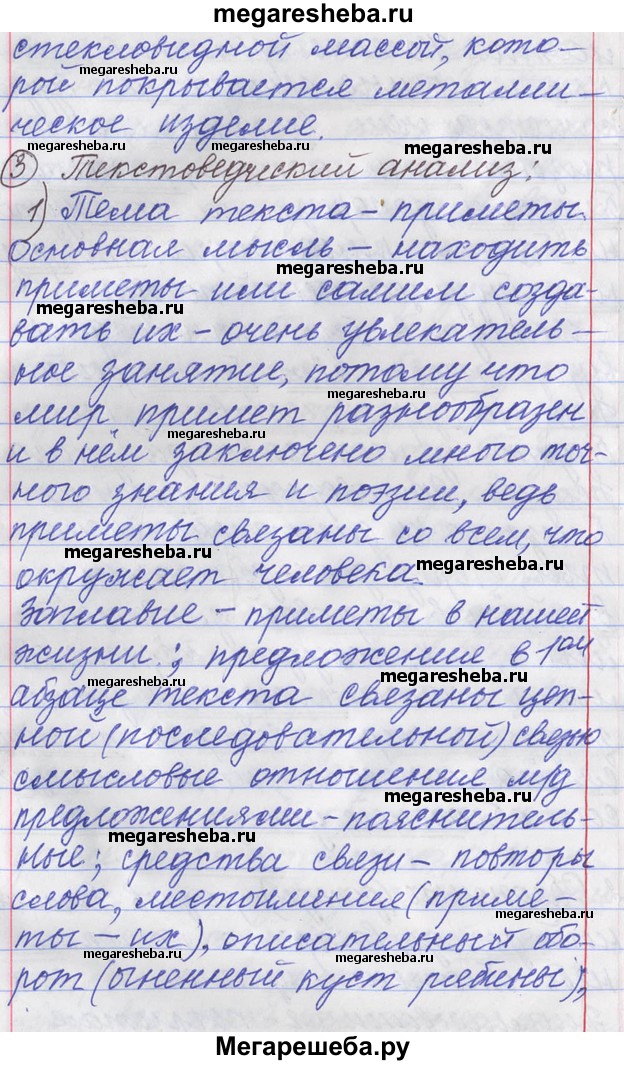 megaresheba.ru
стекловидной массой, кото-
megaresheba.ru
megaresheba.ru
рой покрывается металли-
ческое изделие.
megaresheba.ru
③ Текстоведческий анализ:
1) Тема текста - приметы
основная мысль - находить
megaresheba.ru
приметы или самим созда-
megaresheba.ru
вать их - очень увлекатель-
ное занятие, потому что
мир примет разнообразен
megaresheba.ru
и в нём заключено много точ-
ного знания и поэзии, ведь
приметы связаны со всем, что
megaresheba.ru
megaresheba.ru
окружает человека.
Заглавие - приметы в нашей
жизни.; предложения в 1ом
megaresheba.ru
megaresheba.ru
абзаце текста связаны цеп-
ной (последовательной) связью
смысловые отношение м/д
megaresheba.ru
предложениями - пояснитель-
megaresheba.ru
ные; средства связи - повторы
слова, местоимения (приме-
megaresheba.ru
ты - их), описательный обо-
megaresheba.ru
рот (огненный куст рябины),
Мегарешеба.ру